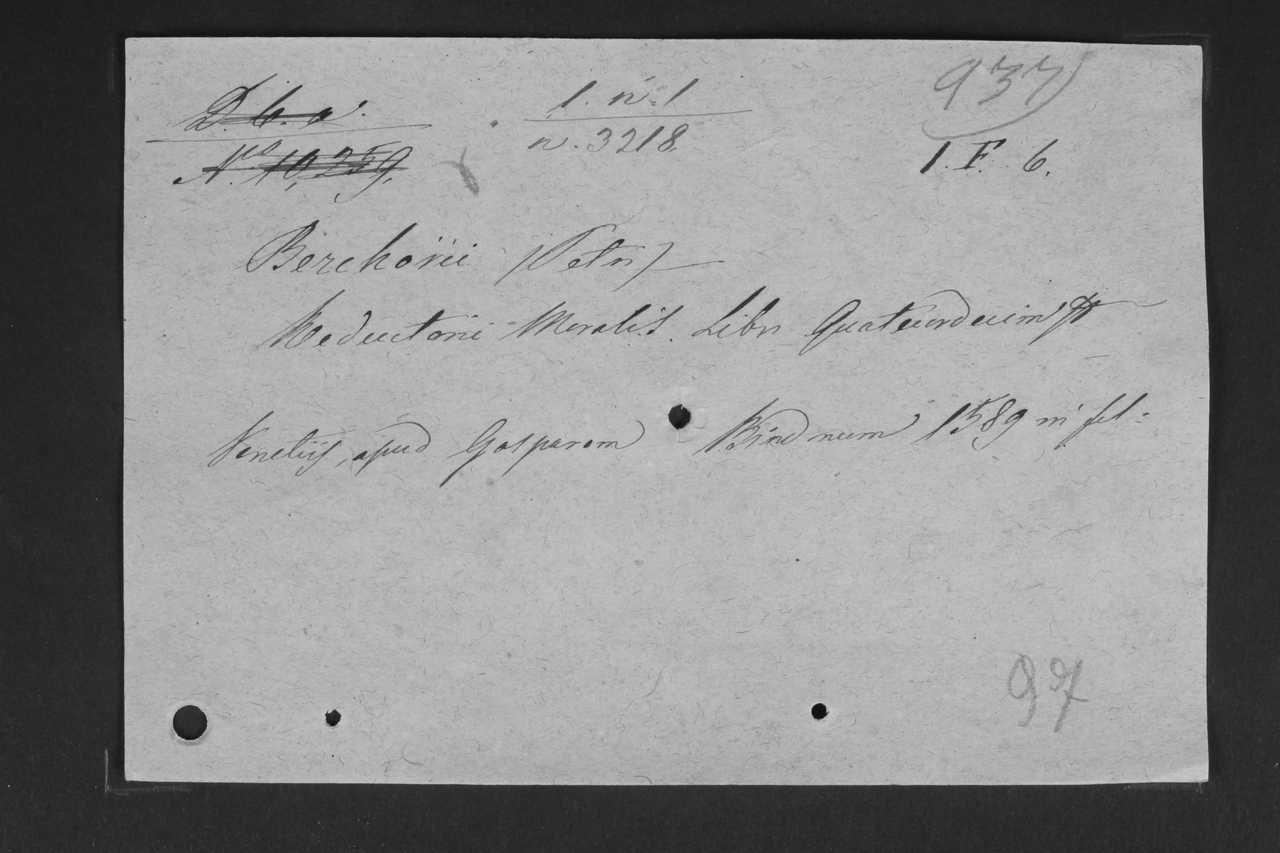 D. b. a.
No 10,259.
1. n. 1
n. 3218
937
1. F. 6.
Berchorii (Petri)
Reductorii Moralis Libri Quatuordecim
Venetijs, apud Gasparem Bindnum 1589 in fol:
97